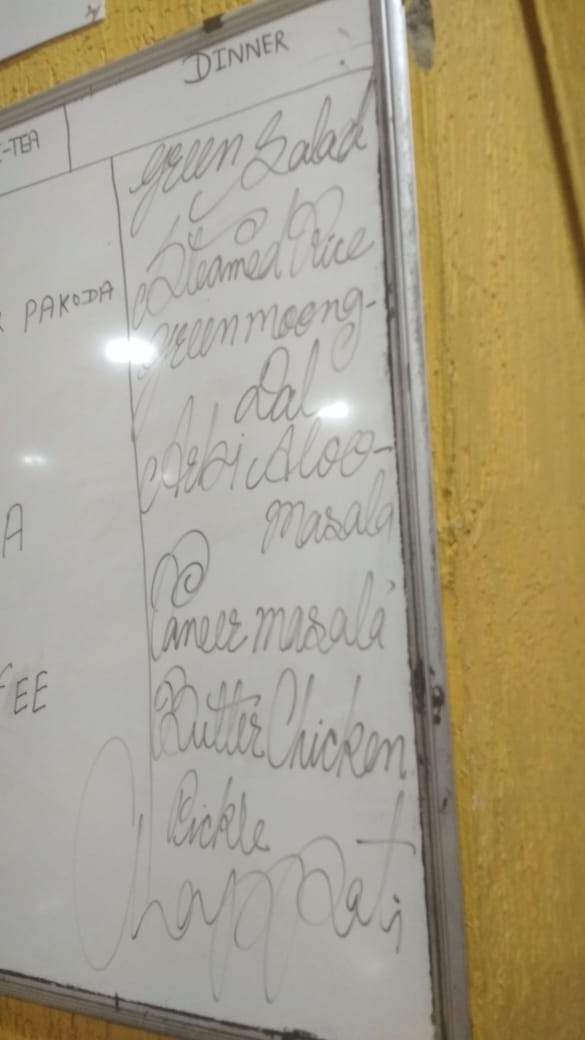 DINNER
-TEA
PAKODA
A
FEE
Green Salad
Steamed Rice
Green moong-
Dal
Arbi Aloo-
masala
Paneer masala
Butter Chicken
Pickle
Chappati